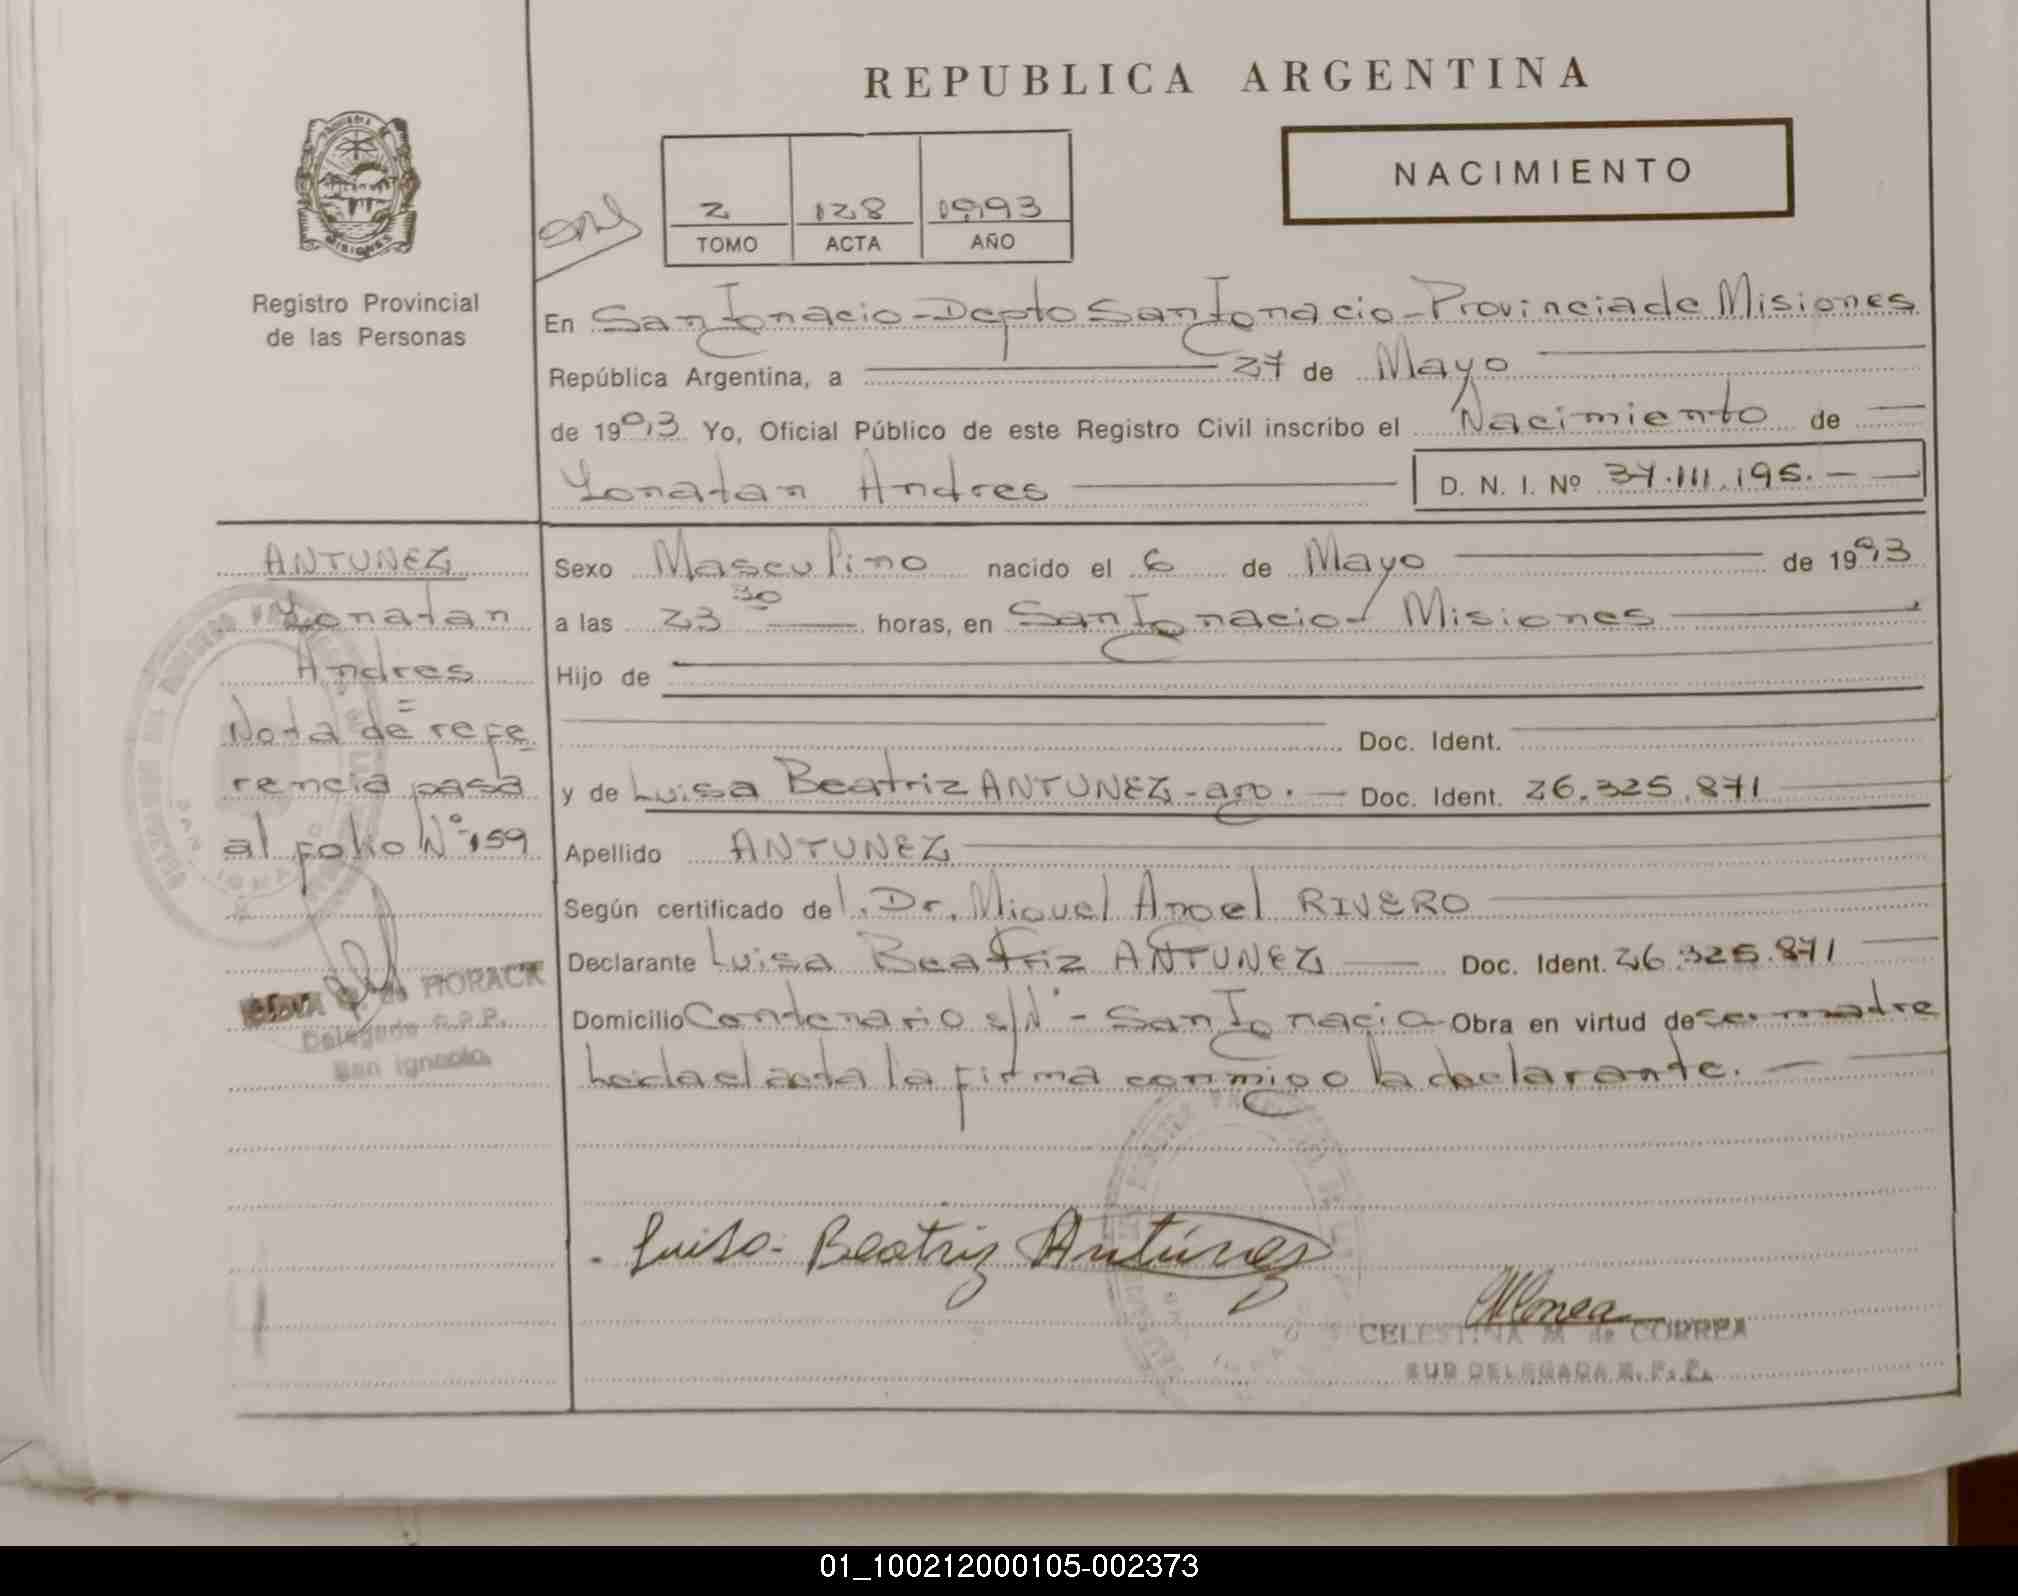 REPUBLICA ARGENTINA
NACIMIENTO
2 128 1993
TOMO ACTA AÑO
PROVINCIA DE MISIONES
Registro Provincial
de las Personas
En San Ignacio - Depto San Ignacio - Provincia de Misiones
República Argentina, a 27 de Mayo
de 1993 Yo, Oficial Público de este Registro Civil inscribo el Nacimiento de
Yonatan Andres D. N. I. Nº 37.111.195.-
ANTUNEZ
Yonatan
Andres
Nota de refe
rencia pasa
al folio Nº 159
de HORACK
Delegada R.P.P.
San Ignacio
Sexo Masculino nacido el 6 de Mayo de 1993
a las 23 30 horas, en San Ignacio - Misiones
Hijo de
Doc. Ident.
y de Luisa Beatriz ANTUNEZ - arg. - Doc. Ident. 26.325.871
Apellido ANTUNEZ
Según certificado del. Dr. Miguel Angel RIVERO
Declarante Luisa Beatriz ANTUNEZ Doc. Ident. 26.325.871
Domicilio Centenario s/Nº - San Ignacio Obra en virtud de ser madre
Leida el acta la firma conmigo la declarante. -
Luisa Beatriz Antúnez
CELESTINA M de CORREA
SUB DELEGADA R. P. P.
01_100212000105-002373